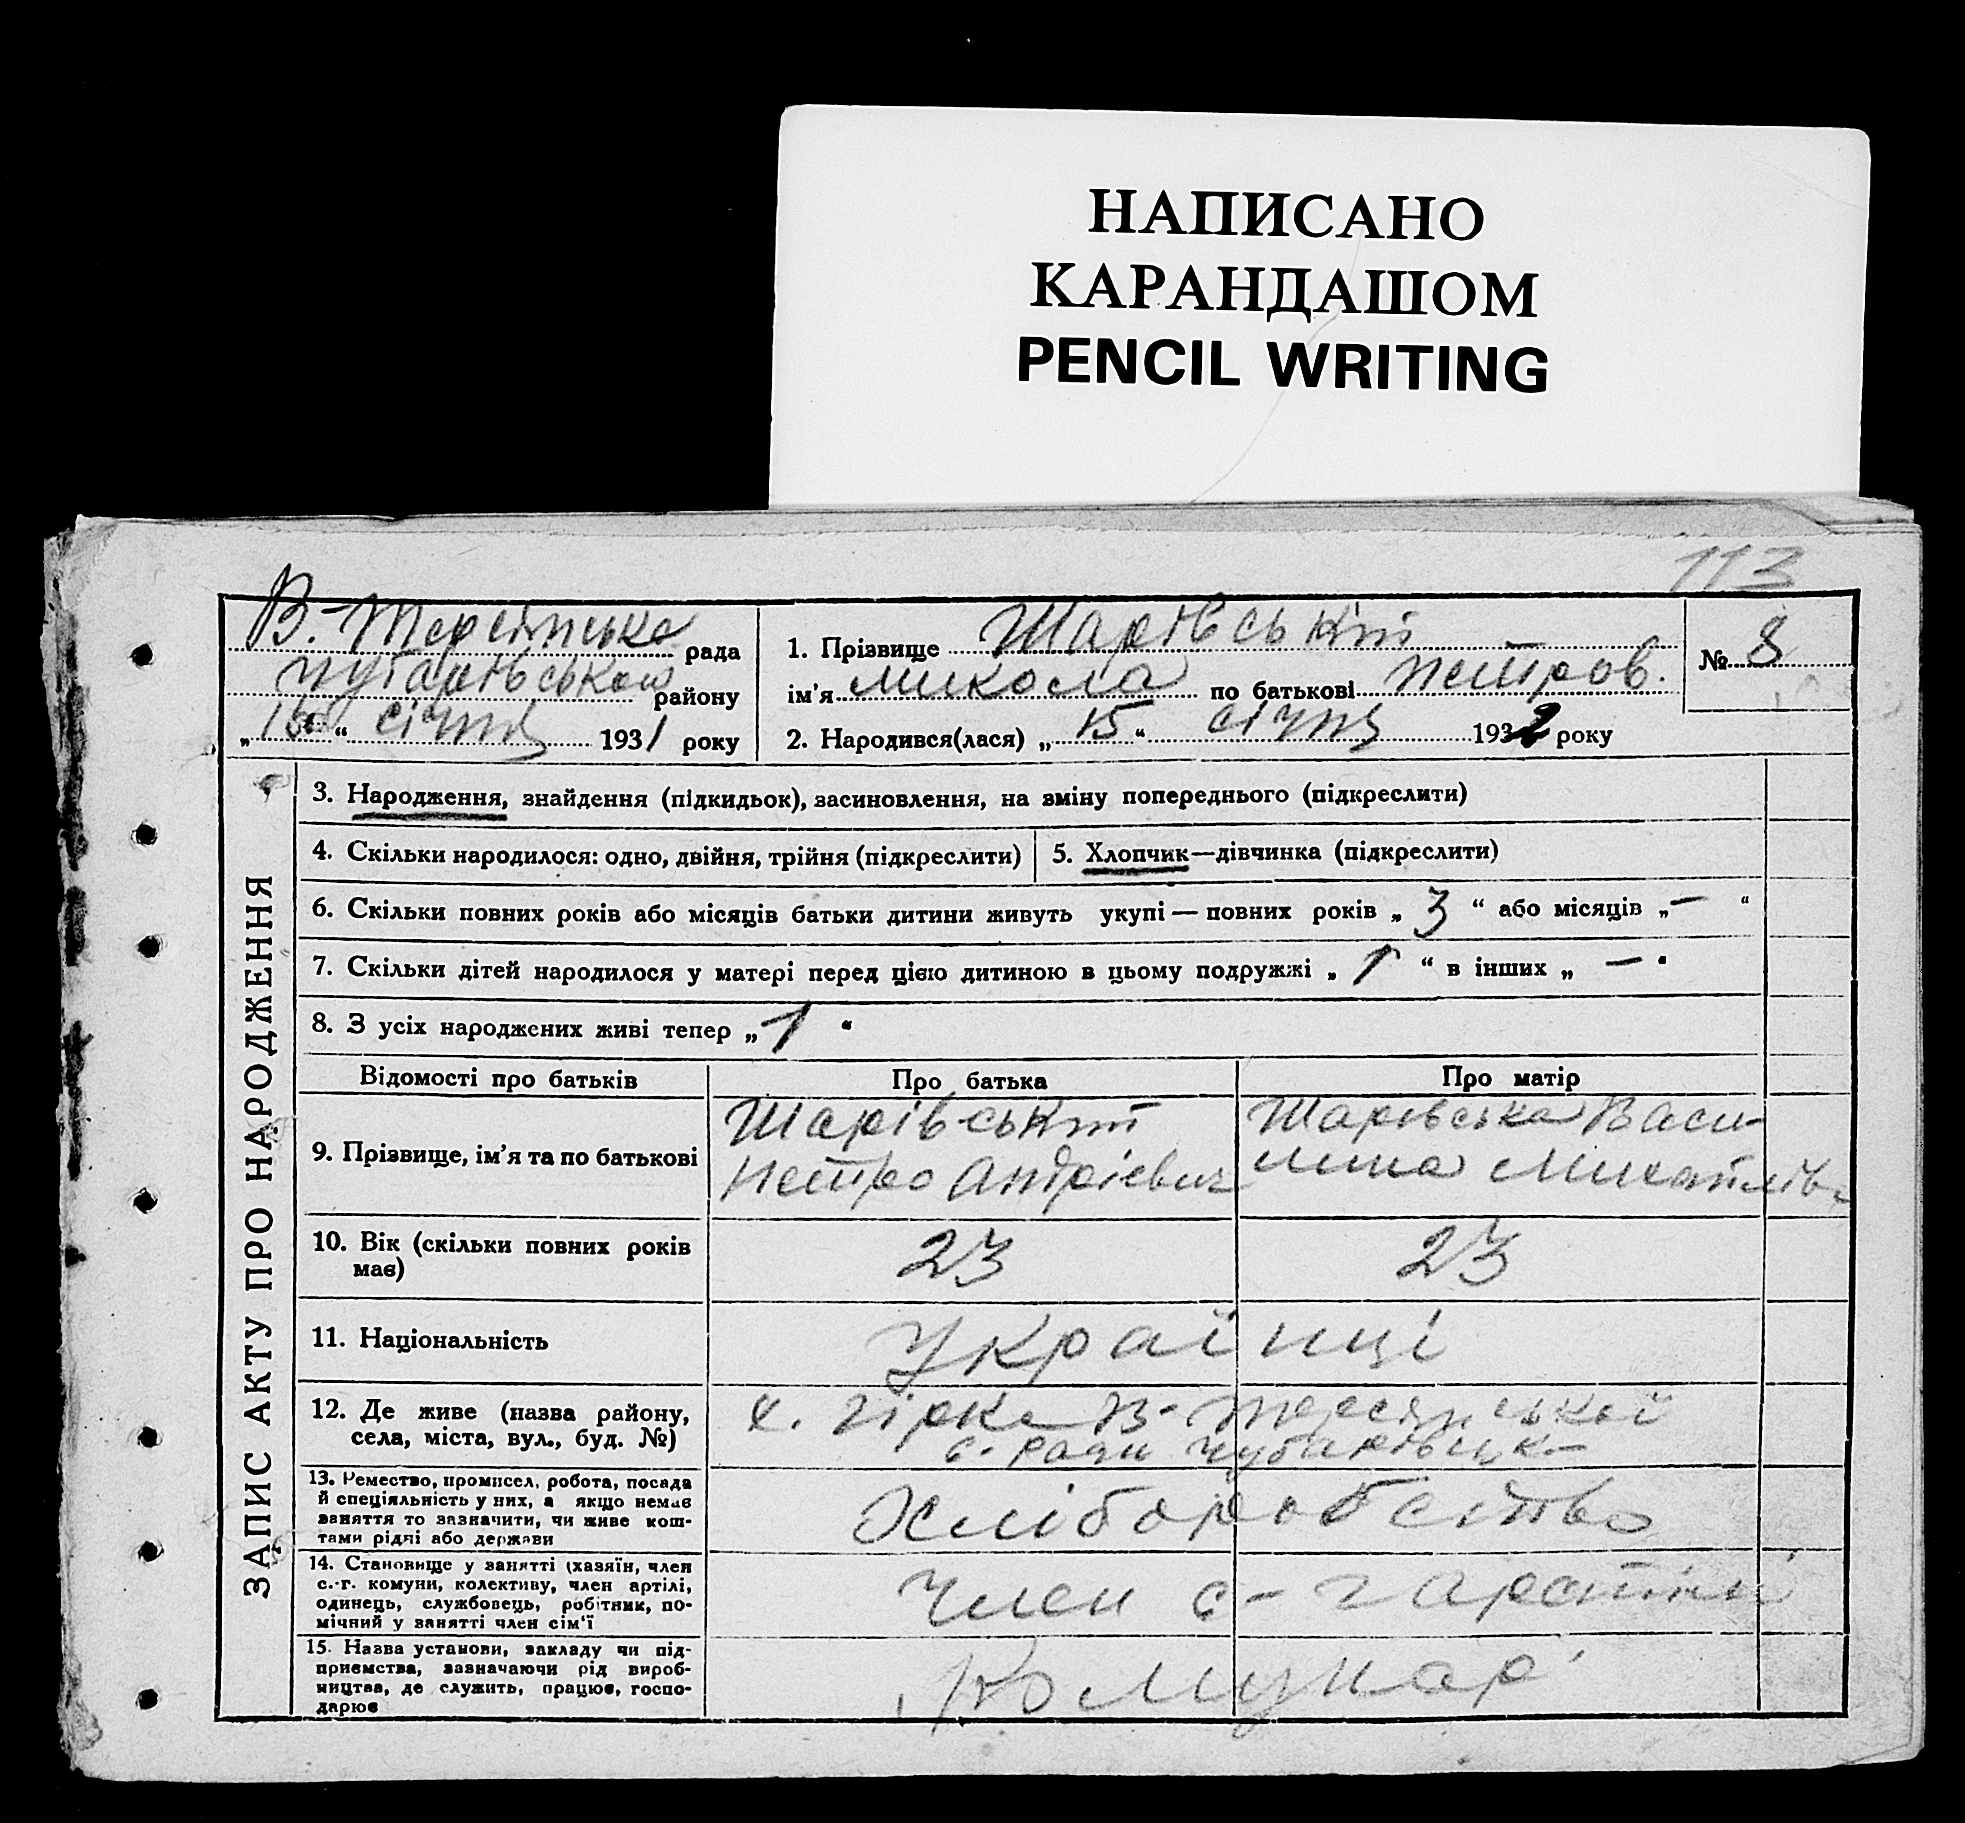 НАПИСАНО
КАРАНДАШОМ
PENCIL WRITING
113
В.-Терсянська рада
Чубарівського району
„ 16 “ січня 1931 року
1. Прізвище Шарівський
ім'я Микола по батькові Петров.
2. Народився(лася) „ 15 “ січня 1932 року
№ 8
ЗАПИС АКТУ ПРО НАРОДЖЕННЯ
3. Народження, знайдення (підкидьок), засиновлення, на зміну попереднього (підкреслити)
4. Скільки народилося: одно, двійня, трійня (підкреслити)
5. Хлопчик—дівчинка (підкреслити)
6. Скільки повних років або місяців батьки дитини живуть укупі — повних років „ 3 “ або місяців „ — “
7. Скільки дітей народилося у матері перед цією дитиною в цьому подружжі „ 1 “ в інших „ — “
8. З усіх народжених живі тепер „ 1 “
Відомості про батьків
Про батька
Про матір
9. Прізвище, ім'я та по батькові
Шарівський
Петро Андрієвич
Шарівська Васи-
лина Михайлів
10. Вік (скільки повних років
має)
23
23
11. Національність
Українці
12. Де живе (назва району,
села, міста, вул., буд. №)
х. Гірке В-Терсянської
с. ради Чубарівськ-
13. Ремество, промисел, робота, посада
й спеціяльність у них, а якщо немає
заняття то зазначити, чи живе кош-
тами рідні або держави
Хліборобство
14. Становище у занятті (хазяїн, член
с.-г. комуни, колективу, член артілі,
одинець, службовець, робітник, по-
мічний у занятті член сім'ї
Член с-г артіли
15. Назва установи, закладу чи під-
приємства, зазначаючи рід вироб-
ництва, де служить, працює, госпо-
дарює
Комунар